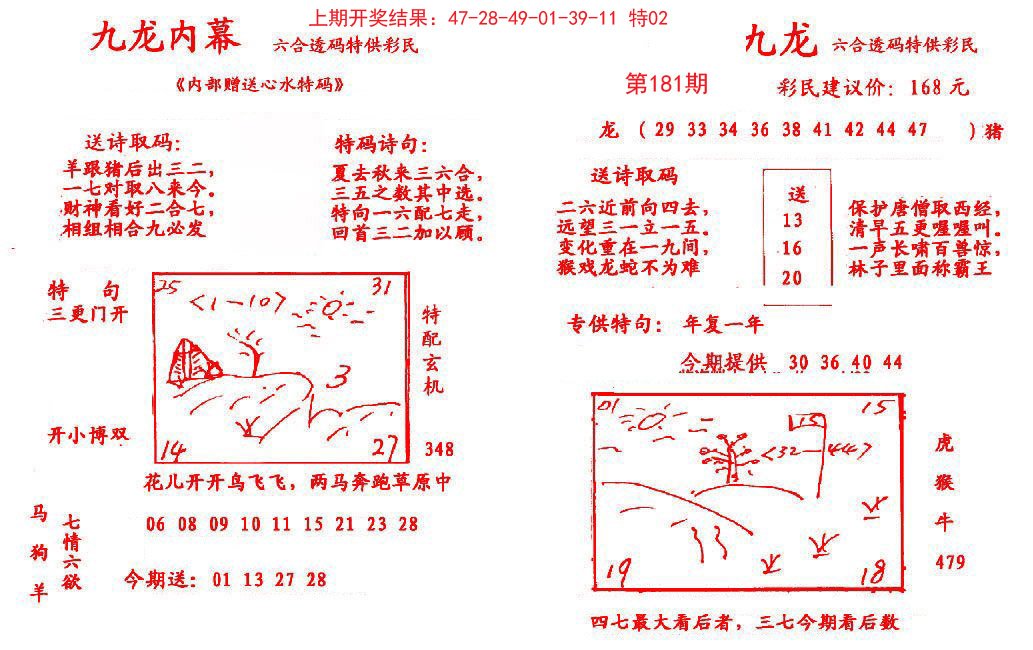 上期开奖结果：47-28-49-01-39-11 特02
九龙内幕 六合透码特供彩民
《内部赠送心水特码》
送诗取码：
羊跟猪后出三二，
一七对取八来今。
财神看好二合七，
相组相合九必发
特码诗句：
夏去秋来三六合，
三五之数其中选。
特向一六配七走，
回首三二加以顾。
特 句
三更门开
开小博双
25
31
<1-10>
3
14
27
特配玄机
348
花儿开开鸟飞飞，两马奔跑草原中
马狗羊
七情六欲
06 08 09 10 11 15 21 23 28
今期送：01 13 27 28
九龙 六合透码特供彩民
第181期
彩民建议价：168 元
龙 （ 29 33 34 36 38 41 42 44 47 ）猪
送诗取码
二六近前向四去，
远望三一立一五。
变化重在一九间，
猴戏龙蛇不为难
送
13
16
20
保护唐僧取西经，
清早五更喔喔叫。
一声长啸百兽惊，
林子里面称霸王
专供特句： 年复一年
今期提供 30 36 40 44
01
15
15
<32-44>
19
18
虎
猴
牛
479
四七最大看后者，三七今期看后数